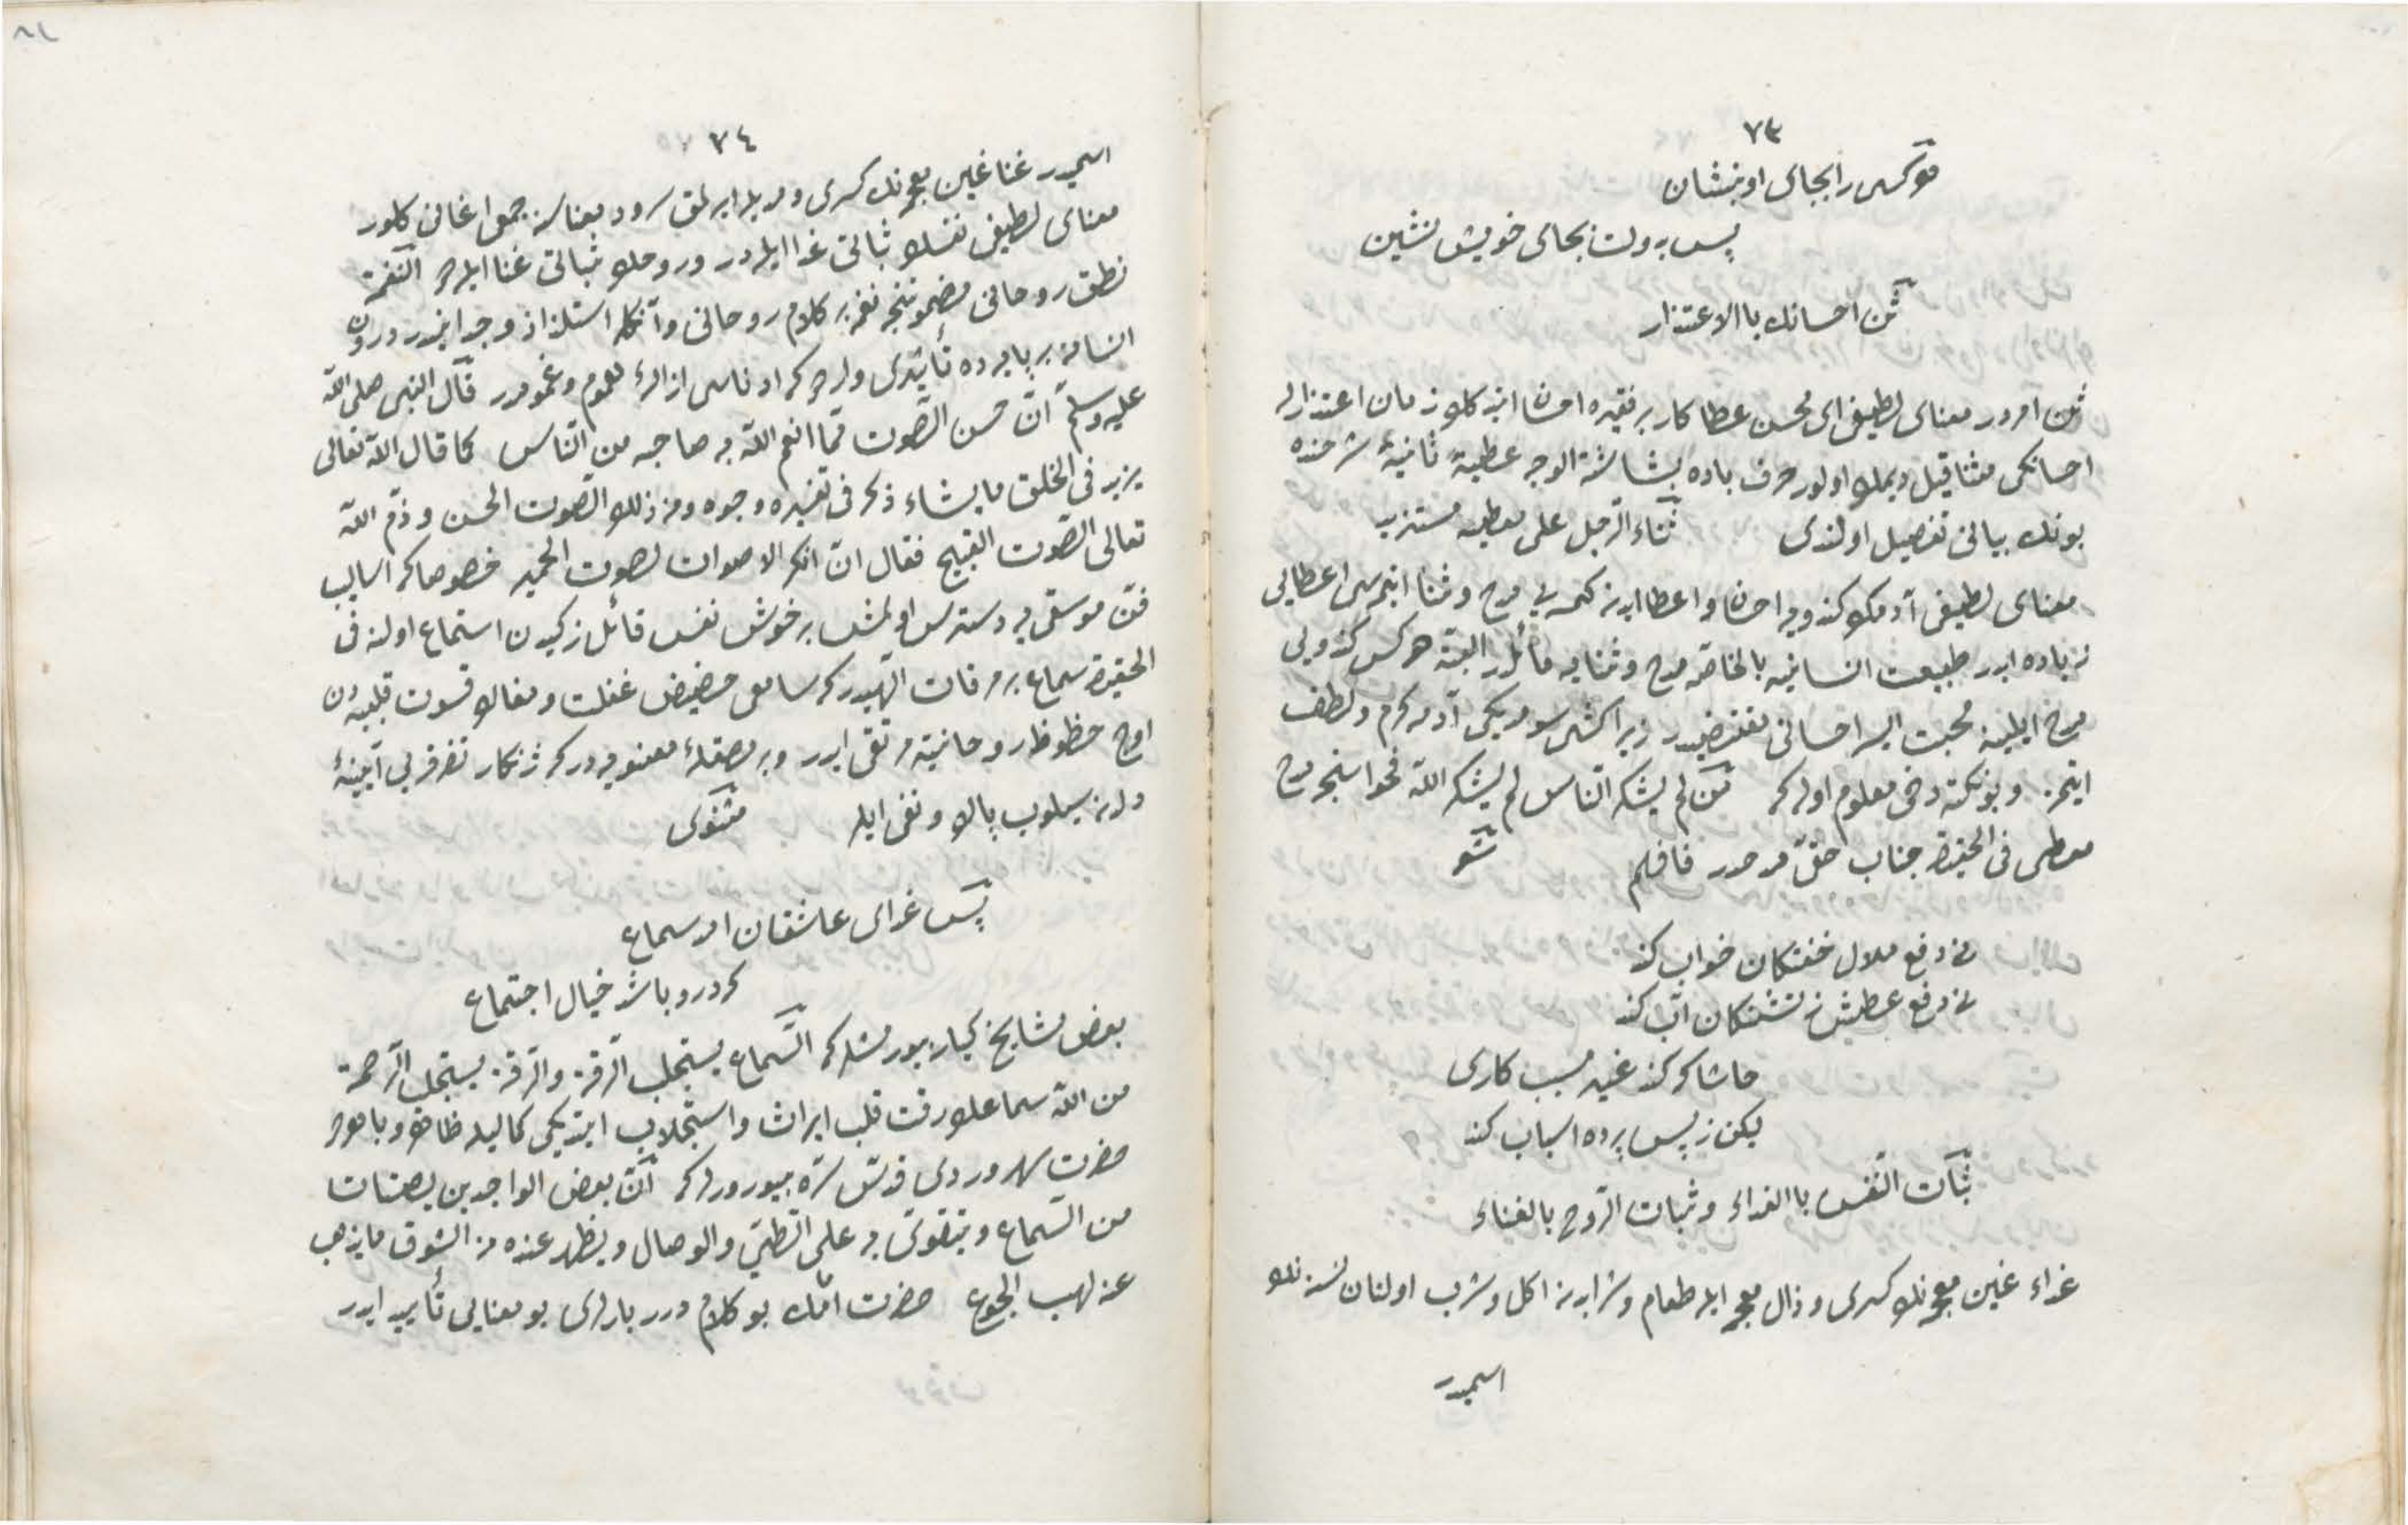 ٧٣
هر کسی را بجای او بنشان
پس بدولت بجای خویش نشین
ثن احسانك باالاعتذار
ثن امردر معنای لطیفی ای محسن عطا کار بر فقیره احسان ایده کلو زمان اعتذارله
احسانکی مثنا قیل دیملو اولور حرف باده بشاشة الوجه عطیة ثانیة شرحنده
بونك بیانی تفصیل اولندی ثناء الرجل علی معطیه مستزید
معنای لطیفی آدمك کندویه احسان و اعطا ایدن کمسه یی مدح و ثنا ایتمسی اعطایی
زیاده ایدر طبیعت انسانیه بالخاصه مدح و ثنایه مائلدر البته هرکس کندویی
مدح ایلینه محبت ایله احسانی مقتضیدر زیرا کشی سومدیکی آدمه کرم و لطف
ایتمز و بونکته دخی معلوم اوله که من لم یشکر الناس لم یشکر الله فحواسنجه مدح
معطی فی الحقیقه جناب حقه مدحدر فافهم شعر
نی دفع ملال خفتکان خواب کند
نی دفع عطش ز تشنکان آب کند
حاشا که کند غیر مسبب کاری
لیکن ز پس پرده اسباب کند
ثبات النفس باالغذاء و ثبات الروح بالغناء
غذاء غین معجمه نك کسری و ذال معجمه ایله طعام و شرابدن اکل و شرب اولنان نسنه نك
اسمیدر
٧٤
اسمیدر غنا غین معجمه نك کسری و مد ایله ایرلمق سرود معناسنه جمعی اغانی کلور
معنای لطیفی نفسك ثباتی غذا ایله در و روحك ثباتی غنا ایله در النغمة
نطق روحانی مضموننجه نغمه بر کلام روحانی و آنکله استلذاذ و جد ایدر درون
انسانده بر پایه ده تأثیری وار در که ادناسی ازالهٔ هموم و غمومدر قال النبی صلی الله
علیه وسلم ان حسن الصوت مما انعم الله به صاحبه من الناس کما قال الله تعالی
یزید فی الخلق ما یشاء ذکر فی تفسیره وجوه ومن ذلك الصوت الحسن و ذم الله
تعالی الصوت القبیح فقال ان انکر الاصوات لصوت الحمیر خصوصا که اسالیب
فن موسقی یه دسترس اولمش بر خوش نفس قائلدن استماع اولنه فی
الحقیقه سماع بر مرقات الهیدر که سامعی حضیض غفلت و مغاك قسوت قلبیه دن
اوج حظوظ روحانیته مرتقی ایدر و بر مصقلهٔ معنویه در که ژنکار تفرقه یی آیینهٔ
دلدن سیلوب پاك و نقی ایلر مثنوی
پس غذای عاشقان آمد سماع
که درو باشد خیال اجتماع
بعض مشایخ کبار بیورمشلر که السماع یستجلب الرقة والرقة یستجلب الرحمة
من الله سماعك رقت قلب ایراث و استجلاب ایتدیکی کمالیله ظاهر و باهردر
حضرت سهروردی قدس سره بیوررلر که ان بعض الواجدین یقتات
من السماع و یتقوی به علی الطی والوصال و یظهر عنده من الشوق ما یذهب
عنه لهب الجوع حضرت امامك بو کلام درر بارلری بو معنایی تأیید ایدر